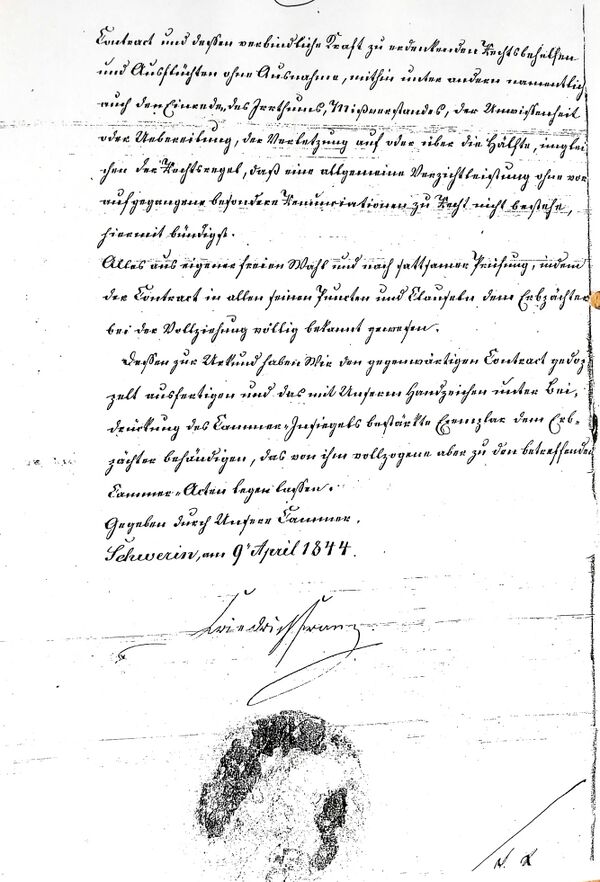 Contract und dessen verbindliche Kraft zu erdenkenden Rechtsbehelfen
und Ausflüchten ohne Ausnahme, mithin unter andern namentlich
auch den Einreden, des Irrthums, Mißverstandes, der Unwissenheit
oder Uebereilung, der Verletzung auf oder über die Hälfte, inglei-
chen der Rechtsregel, daß eine allgemeine Verzichtleistung ohne vor-
aufgegangene besondere Renunciationen zu Recht nicht bestehe,
hiermit bündigst.
Alles aus eigener freien Wahl und nach sattsamer Prüfung, indem
der Contract in allen seinen Puncten und Clauseln dem Erbpächter
bei der Vollziehung völlig bekannt gewesen.
Dessen zur Urkund haben Wir den gegenwärtigen Contract gedop-
pelt ausfertigen und das mit Unserm Handzeichen unter Bei-
drückung des Cammer-Insiegels bestärkte Exemplar dem Erb-
pächter behändigen, das von ihm vollzogene aber zu den betreffenden
Cammer-Acten legen lassen.
Gegeben durch Unsere Cammer.
Schwerin, am 9t April 1844.
Friedrich Franz.